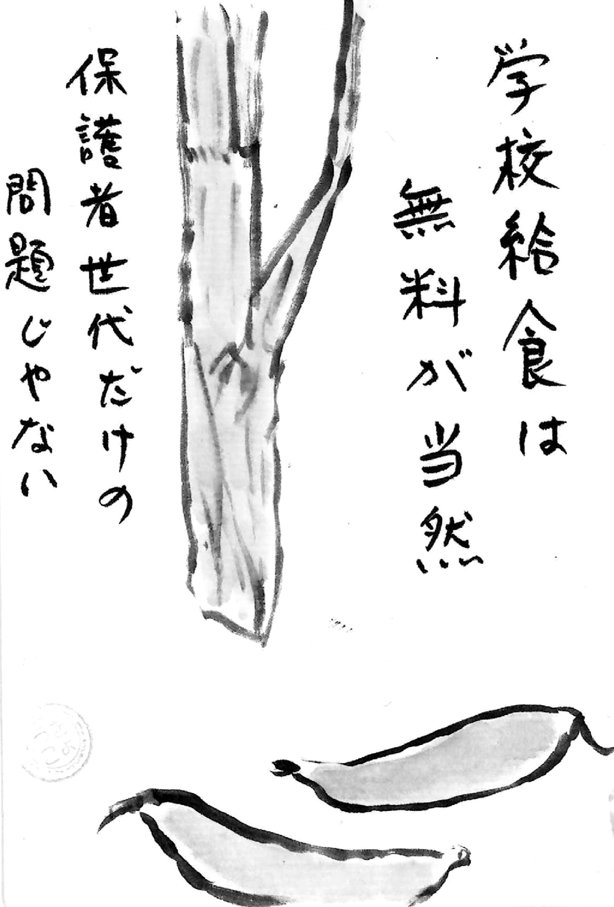 学校給食は
無料が当然
保護者世代だけの
問題じゃない